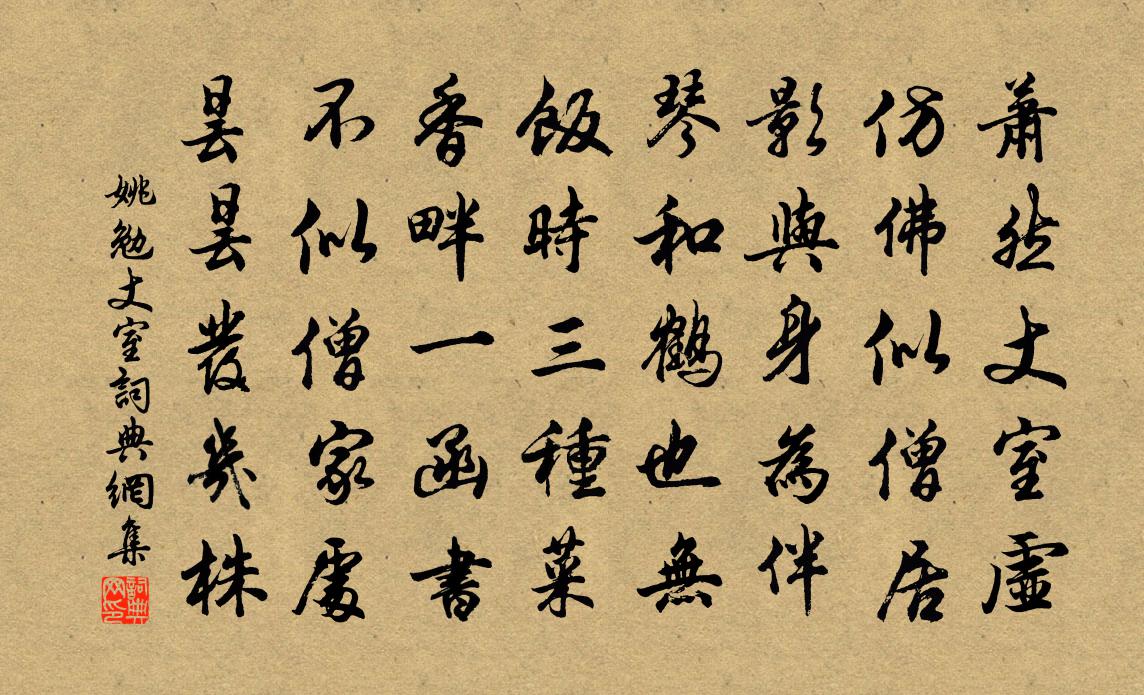 蕭然丈室虛
仿佛似僧居
影與身為伴
琴和鶴也無
飯時三種菜
香畔一函書
不似僧家處
曇曇發幾株
姚勉丈室詞典網集
詞典网印